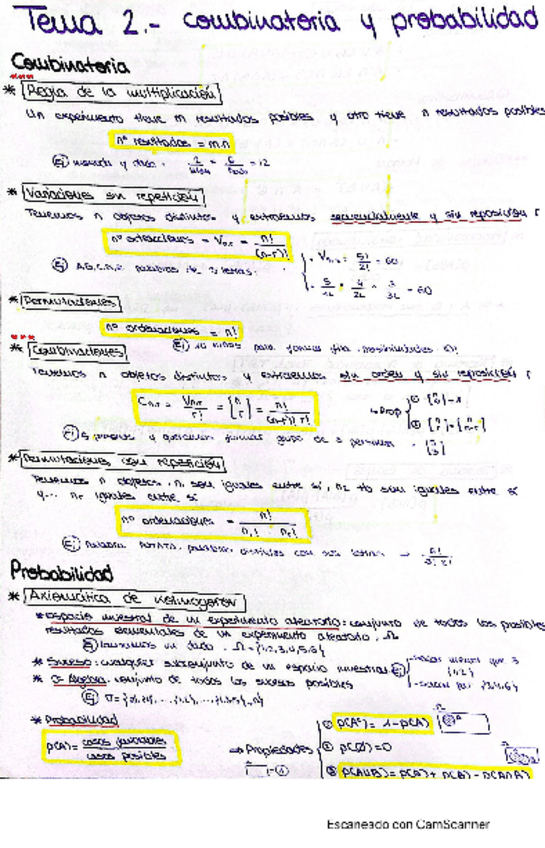 Tema 2.- combinatoria y probabilidad
Combinatoria
* Regla de la multiplicación
Un experimento tiene m resultados posibles y otro tiene n resultados posibles
nº resultados = m.n
Ej moneda y dado. 2 6 = 12
* Variaciones sin repetición
Tenemos n objetos distintos y extraemos secuencialmente y sin reposición r
nº extracciones = Vn,r = n! / (n-r)!
Ej A,B,C,D,E palabras de 3 letras. = 5! / 2! = 60
5 4 3 = 60
* Permutaciones
nº ordenaciones = n!
Ej niños para formar fila.
* Combinaciones
Tenemos n objetos distintos y extraemos sin orden y sin reposición r
Cn,r = Vn,r / r! = (n r) = n! / (n-r)! r!
Prop
Ej 5 personas y quieren formar grupo de 3 personas
* Permutaciones con repetición
Tenemos n objetos, n₁ son iguales entre sí, n₂ son iguales entre sí
y... nr iguales entre sí
nº ordenaciones = n! / n₁! ... nr!
Ej Palabra distintas con sus letras →
Probabilidad
* Axiomática de Kolmogorov
* Espacio muestral de un experimento aleatorio: conjunto de todos los posibles
resultados elementales de un experimento aleatorio. Ω
Ej lanzamos un dado. Ω={1,2,3,4,5,6}
* Suceso: cualquier subconjunto de un espacio muestral Ej menor que 3
{1,2}
* σ-Álgebra. conjunto de todos los sucesos posibles
Ej
* Probabilidad
P(A) = casos favorables / casos posibles
→ Propiedades
① P(Aᶜ) = 1-P(A)
② P(∅)=0
③ P(AUB) = P(A) + P(B) - P(A∩B)
Escaneado con CamScanner